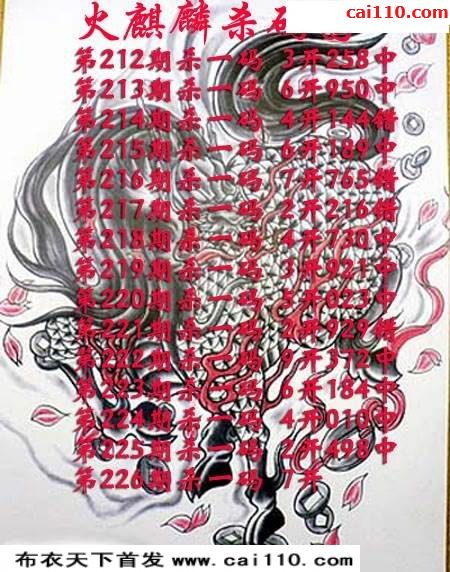 cai110.com
火麒麟杀码
第212期杀一码 3开258中
第213期杀一码 6开950中
第214期杀一码 4开144错
第215期杀一码 6开189中
第216期杀一码 7开765错
第217期杀一码 2开216错
第218期杀一码 4开730中
第219期杀一码 3开921中
第220期杀一码 5开023中
第221期杀一码 2开929错
第222期杀一码 9开372中
第223期杀一码 6开184中
第224期杀一码 4开010中
第225期杀一码 2开498中
第226期杀一码 7开
布衣天下首发 www.cai110.com